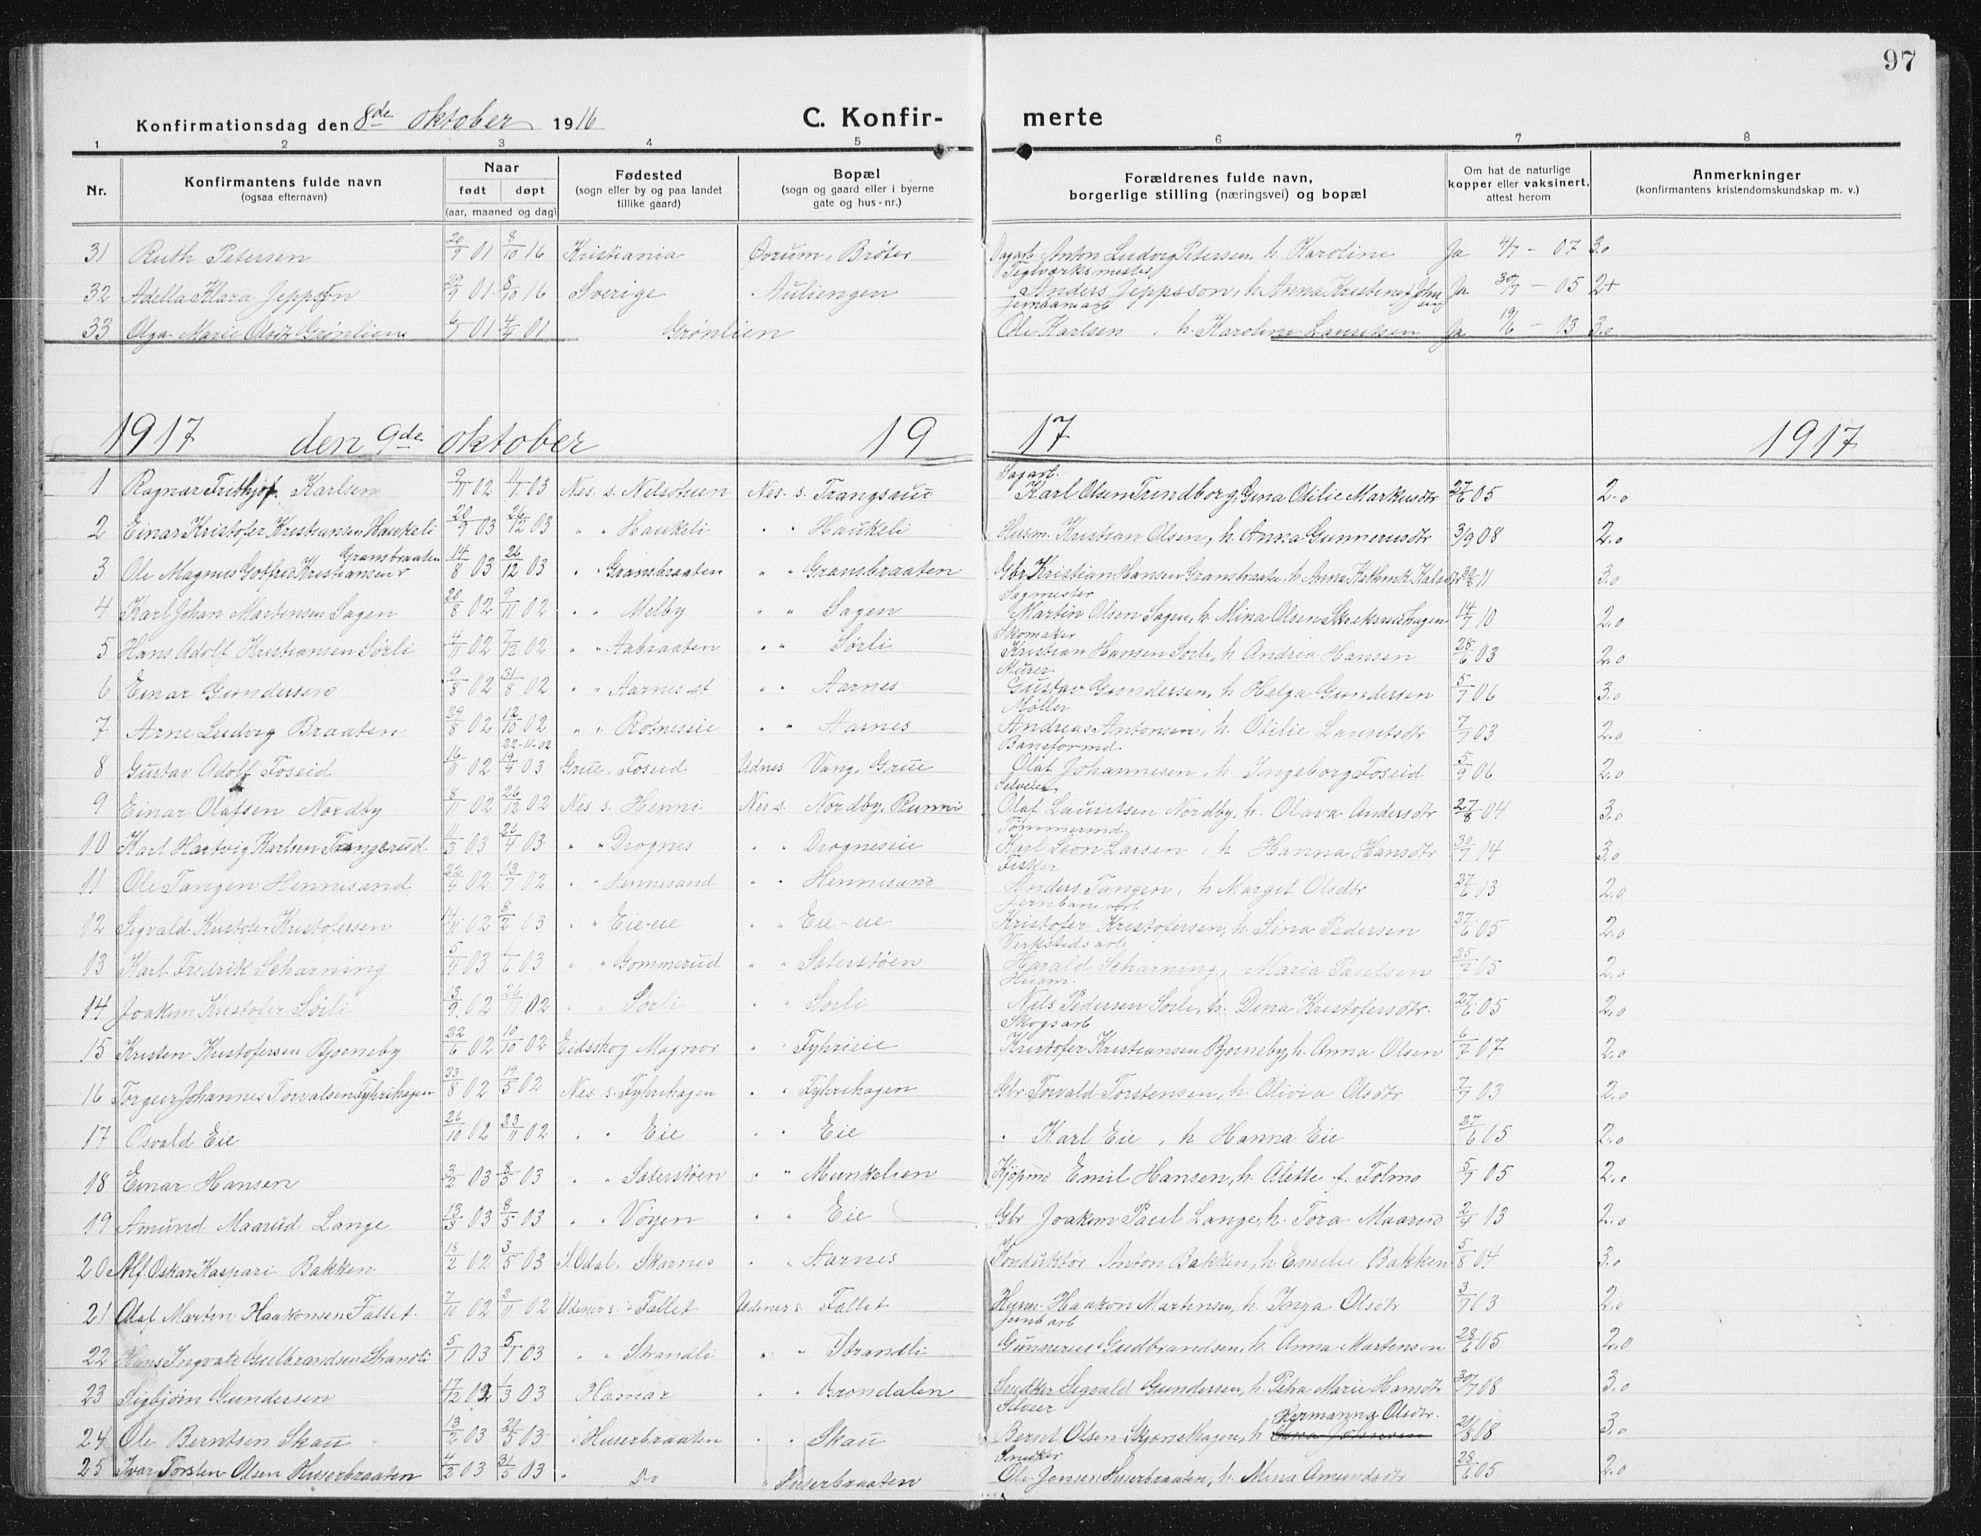 97
Konfirmationsdag den 8de oktober 1916 C. Konfir- merte
1 2 3 4 5 6 7 8
Nr. Konfirmantens fulde navn (ogsaa efternavn) Naar født døpt (aar, maaned og dag) Fødested (sogn eller by og paa landet tillike gaard) Bopæl (sogn og gaard eller i byerne gate og hus-nr.) Forældrenes fulde navn, borgerlige stilling (næringsvei) og bopæl Om hat de naturlige kopper eller vaksinert, attest herom Anmerkninger (konfirmantens kristendomskundskap m. v.)
31 Ruth Petersen 20/9 01 8/10 16 Kristiania Ørum, Brøter Dagarb. Anton Ludvig Petersen h. Karoline Ja 4/7 - 07 3.0
Teglværksmester
32 Adella Klara Jeppson 01 8/10 16 Sverige Auliengen Anders Jeppsson, h. Anna Kristine Ja 30/7 - 05 2+
33 Olga Marie Grønlien 6/7 01 01 Grønlien Ole Karlsen, h. Karoline Lauritsen Ja 19/6 - 13 3.0
1917 den 9de oktober 19 17 1917
Sagarb.
1 Ragnar Frithjof Karlsen 9/11 02 03 Nes s. Nes. s. Karl Olsen Trundborg, Gina Otilie Markusdtr 27/6 05 2.0
2 Einar Kristofer Kristiansen Haukeli 20/9 03 26/12 03 " " Haukeli " " Haukeli Husm. Kristian Olsen, h. Anna Gunnerusdtr 3/9 08 2.0
Gransbraaten
3 Ole Magnus Gotfred Kristiansen 14/8 03 26/12 03 " " Gransbraaten " " Gransbraaten Gbr. Kristian Hansen Gransbraaten, h. Anna 11 3.0
Sagmester
4 Karl Johan Martensen Sagen 20/8 02 9/11 02 " " Melby " " Sagen Martin Olsen Sagen, h. Mina Olsen 14/7 10 2.0
Skomaker
5 Hans Adolf Kristiansen Sørli 4/11 02 7/12 02 " " Aabraaten " " Sørli Kristian Hansen Sørli, h. Andrea Hansen 25/6 03 2.0
Murer
6 Einar Gundersen 9/8 02 31/8 02 " " Aarnes st " " Aarnes Gustav Gundersen, h. Helga Gundersen 5/7 06 3.0
Møller
7 Arne Ludvig Braaten 29/8 02 12/10 02 " " Rotneseie " " Aarnes Andreas Antonsen, h. Otilie Lauritsdtr 7/7 03 2.0
22-11-02
Baneformd.
8 Gustav Adolf Foseid 16/11 02 03 Grue, Foseid Udnes Vang, Grue Olaf Johannesen, h. Ingeborg Foseid 5/9 06 2.0
Selveier
9 Einar Olafsen Nordby 8/11 02 26/12 02 Nes s. Henni Nes s. Nordby, Runni Olaf Lauritsen Nordby, h. Olava Andersdtr 27/8 04 3.0
Tømmermd.
10 Karl Hartvig Karlsen Trangsrud 03 26/4 03 " " Drognes " " Drogneseie Karl Leon Larsen, h. Hanna Hansdtr 30/7 14 3.0
Fisker
11 Ole Tangen Hennisand 22/4 02 13/7 02 " " Hennisand " " Hennisand Anders Tangen, h. Marget Olsdtr 27/6 03 2.0
Jernbanearb
12 Sigvald Kristofer Kristofersen 14/11 02 8/2 03 " " Eie-eie " " Eie-eie Kristofer Kristofersen, h. Sina Pedersen 27/6 05 2.0
Verkstedsarb
13 Karl Fredrik Scharning 5/4 03 1/6 03 " " Gommerud " " Sæterstøen Harald Scharning, Maria Paulsen 25/7 05 2.0
Husm.
14 Joakim Kristofer Sørli 3/9 02 02 " " Sørli " " Sorli Nils Pedersen Sorli, h. Dina Kristofersdtr. 27/6 05 2.0
Skogsarb
15 Kristen Kristofersen Bjørneby 22/6 02 10/10 02 Eidsskog Magnor " " Fyhrieie Kristofer Kristiansen Bjorneby, h. Anna Olsen 6/7 07 2.0
16 Torgeir Johannes Torvalsen Fyhrihagen 23/8 02 19/5 02 Nes s. Fyhrihagen " " Fyhrihagen Gbr Torvald Torstensen, h. Olivia Olsdtr 7/7 03 2.0
17 Osvald Eie 26/10 02 23/11 02 " " Eie " " Eie " Karl Eie, h. Hanna Eie 27/6 05 2.0
18 Einar Hansen 3/2 03 8/3 03 " " Sæterstøen " " Munkelsen Kjøpmd Emil Hansen, h. Alette f. Folmo 5/7 05 2.0
19 Amund Maarud Lange 13/3 03 8/5 03 " " Vøyen " " Eie Gbr Joakim Paul Lange, h. Tora Maarud 2/4 13 2.0
20 Alf Oskar Kaspari Bakken 18/2 02 3/5 03 S. Odal. Skarnes " " Aarnes Konduktør Anton Bakken, h. Emelie Bakken 5/8 04 3.0
21 Olaf Martin Haakonsen Fallet 7/10 02 2/11 02 Udenes s. Fallet Udenes s. Fallet Husm. Haakon Martinsen, h. Inga Olsdtr 3/7 13 2.0
Jernb arb
22 Hans Ingvald Gulbrandsen Strandli 5/1 03 5/7 03 " " Strandli " " Strandli Gunnerius Gudbrandsen, h. Anna Martensen 28/6 05 2.0
23 Sigbjørn Gundersen 17/12 02 1/3 03 Hamar " " Grøndalen Snedker Sigvald Gundersen, h. Petra Marie Hansdtr 30/7 08 3.0
Selveier Hermanna Olsdtr.
24 Ole Berntsen Skau 13/2 03 03 " Huserbraaten " " Skau Bernt Olsen Skjønehagen, h. 08 3.0
Snedker
25 Ivar Torsten Olsen Huserbraaten 4/2 03 31/5 03 " Do " Huserbraaten Ole Jensen Huserbraaten, h. Mina Amundsdtr 28/6 05 2.0